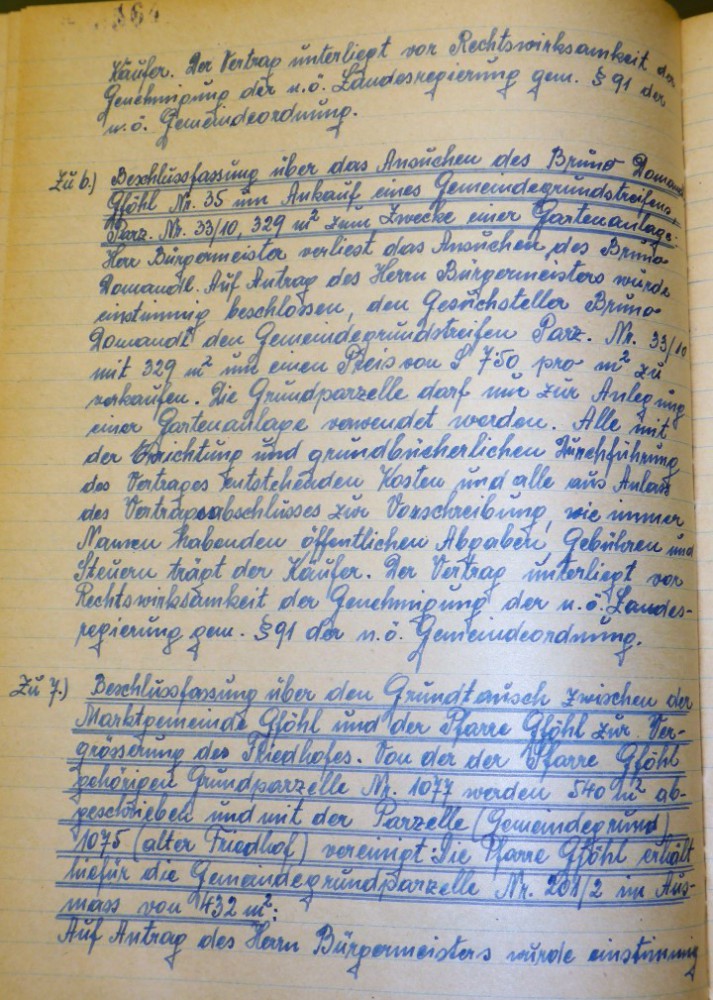 364
Käufer. Der Vertrag unterliegt vor Rechtswirksamkeit der
Genehmigung der n.ö. Landesregierung gem. § 91 der
n.ö. Gemeindeordnung.
Zu 6.) Beschlussfassung über das Ansuchen des Bruno Domandl
Gföhl Nr. 35 um Ankauf eines Gemeindegrundstreifens
Parz. Nr. 33/10, 329 m² zum Zwecke einer Gartenanlage:
Herr Bürgermeister verliest das Ansuchen des Bruno
Domandl. Auf Antrag des Herrn Bürgermeisters wurde
einstimmig beschlossen, den Gesuchsteller Bruno
Domandl den Gemeindegrundstreifen Parz. Nr. 33/10
mit 329 m² um einen Preis von S 750 pro m² zu
verkaufen. Die Grundparzelle darf nur zur Anlegung
einer Gartenanlage verwendet werden. Alle mit
der Errichtung und grundbücherlichen Durchführung
des Vertrages entstehenden Kosten und alle aus Anlass
des Vertragsabschlusses zur Vorschreibung, wie immer
Namen habenden öffentlichen Abgaben, Gebühren und
Steuern trägt der Käufer. Der Vertrag unterliegt vor
Rechtswirksamkeit der Genehmigung der n.ö. Landes-
regierung gem. § 91 der n.ö. Gemeindeordnung.
Zu 7.) Beschlussfassung über den Grundtausch zwischen der
Marktgemeinde Gföhl und der Pfarre Gföhl zur Ver-
grösserung des Friedhofes. Von der der Pfarre Gföhl
gehörigen Grundparzelle Nr. 1077 werden 540 m² ab-
geschrieben und mit der Parzelle (Gemeindegrund)
1075 (alter Friedhof) vereinigt. Die Pfarre Gföhl erhält
hiefür die Gemeindegrundparzelle Nr. 208/2 im Aus-
mass von 432 m²:
Auf Antrag des Herrn Bürgermeisters wurde einstimmig